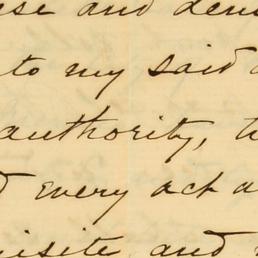 and
to my said
authority,
every act
and